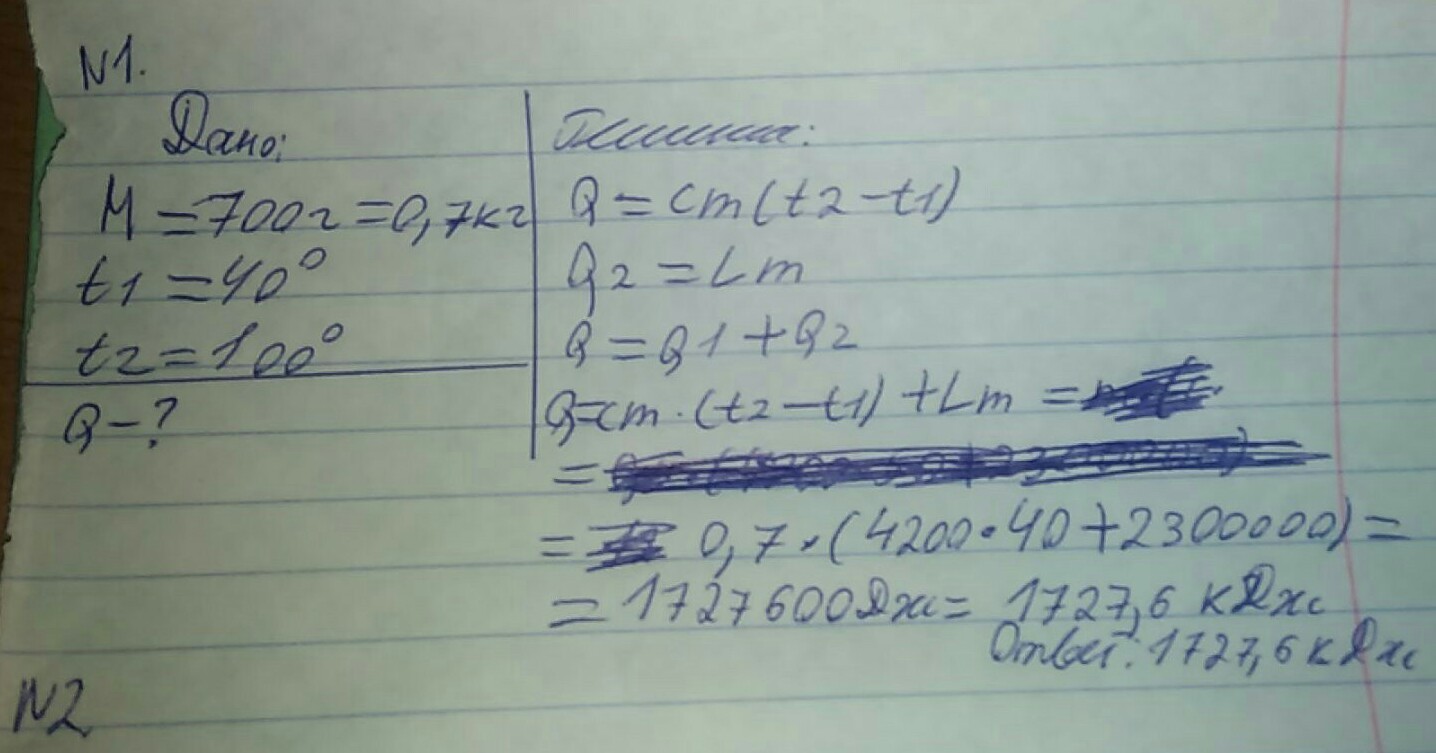 N1.
Дано:
M = 700г = 0,7кг
t1 = 40°
t2 = 100°
Q - ?
Q = cm(t2 - t1)
Q2 = Lm
Q = Q1 + Q2
Q = cm · (t2 - t1) + Lm =
=
= 0,7 · (4200 · 40 + 2300000) =
= 1727600Дж = 1727,6 кДж
Ответ: 1727,6 кДж
N2